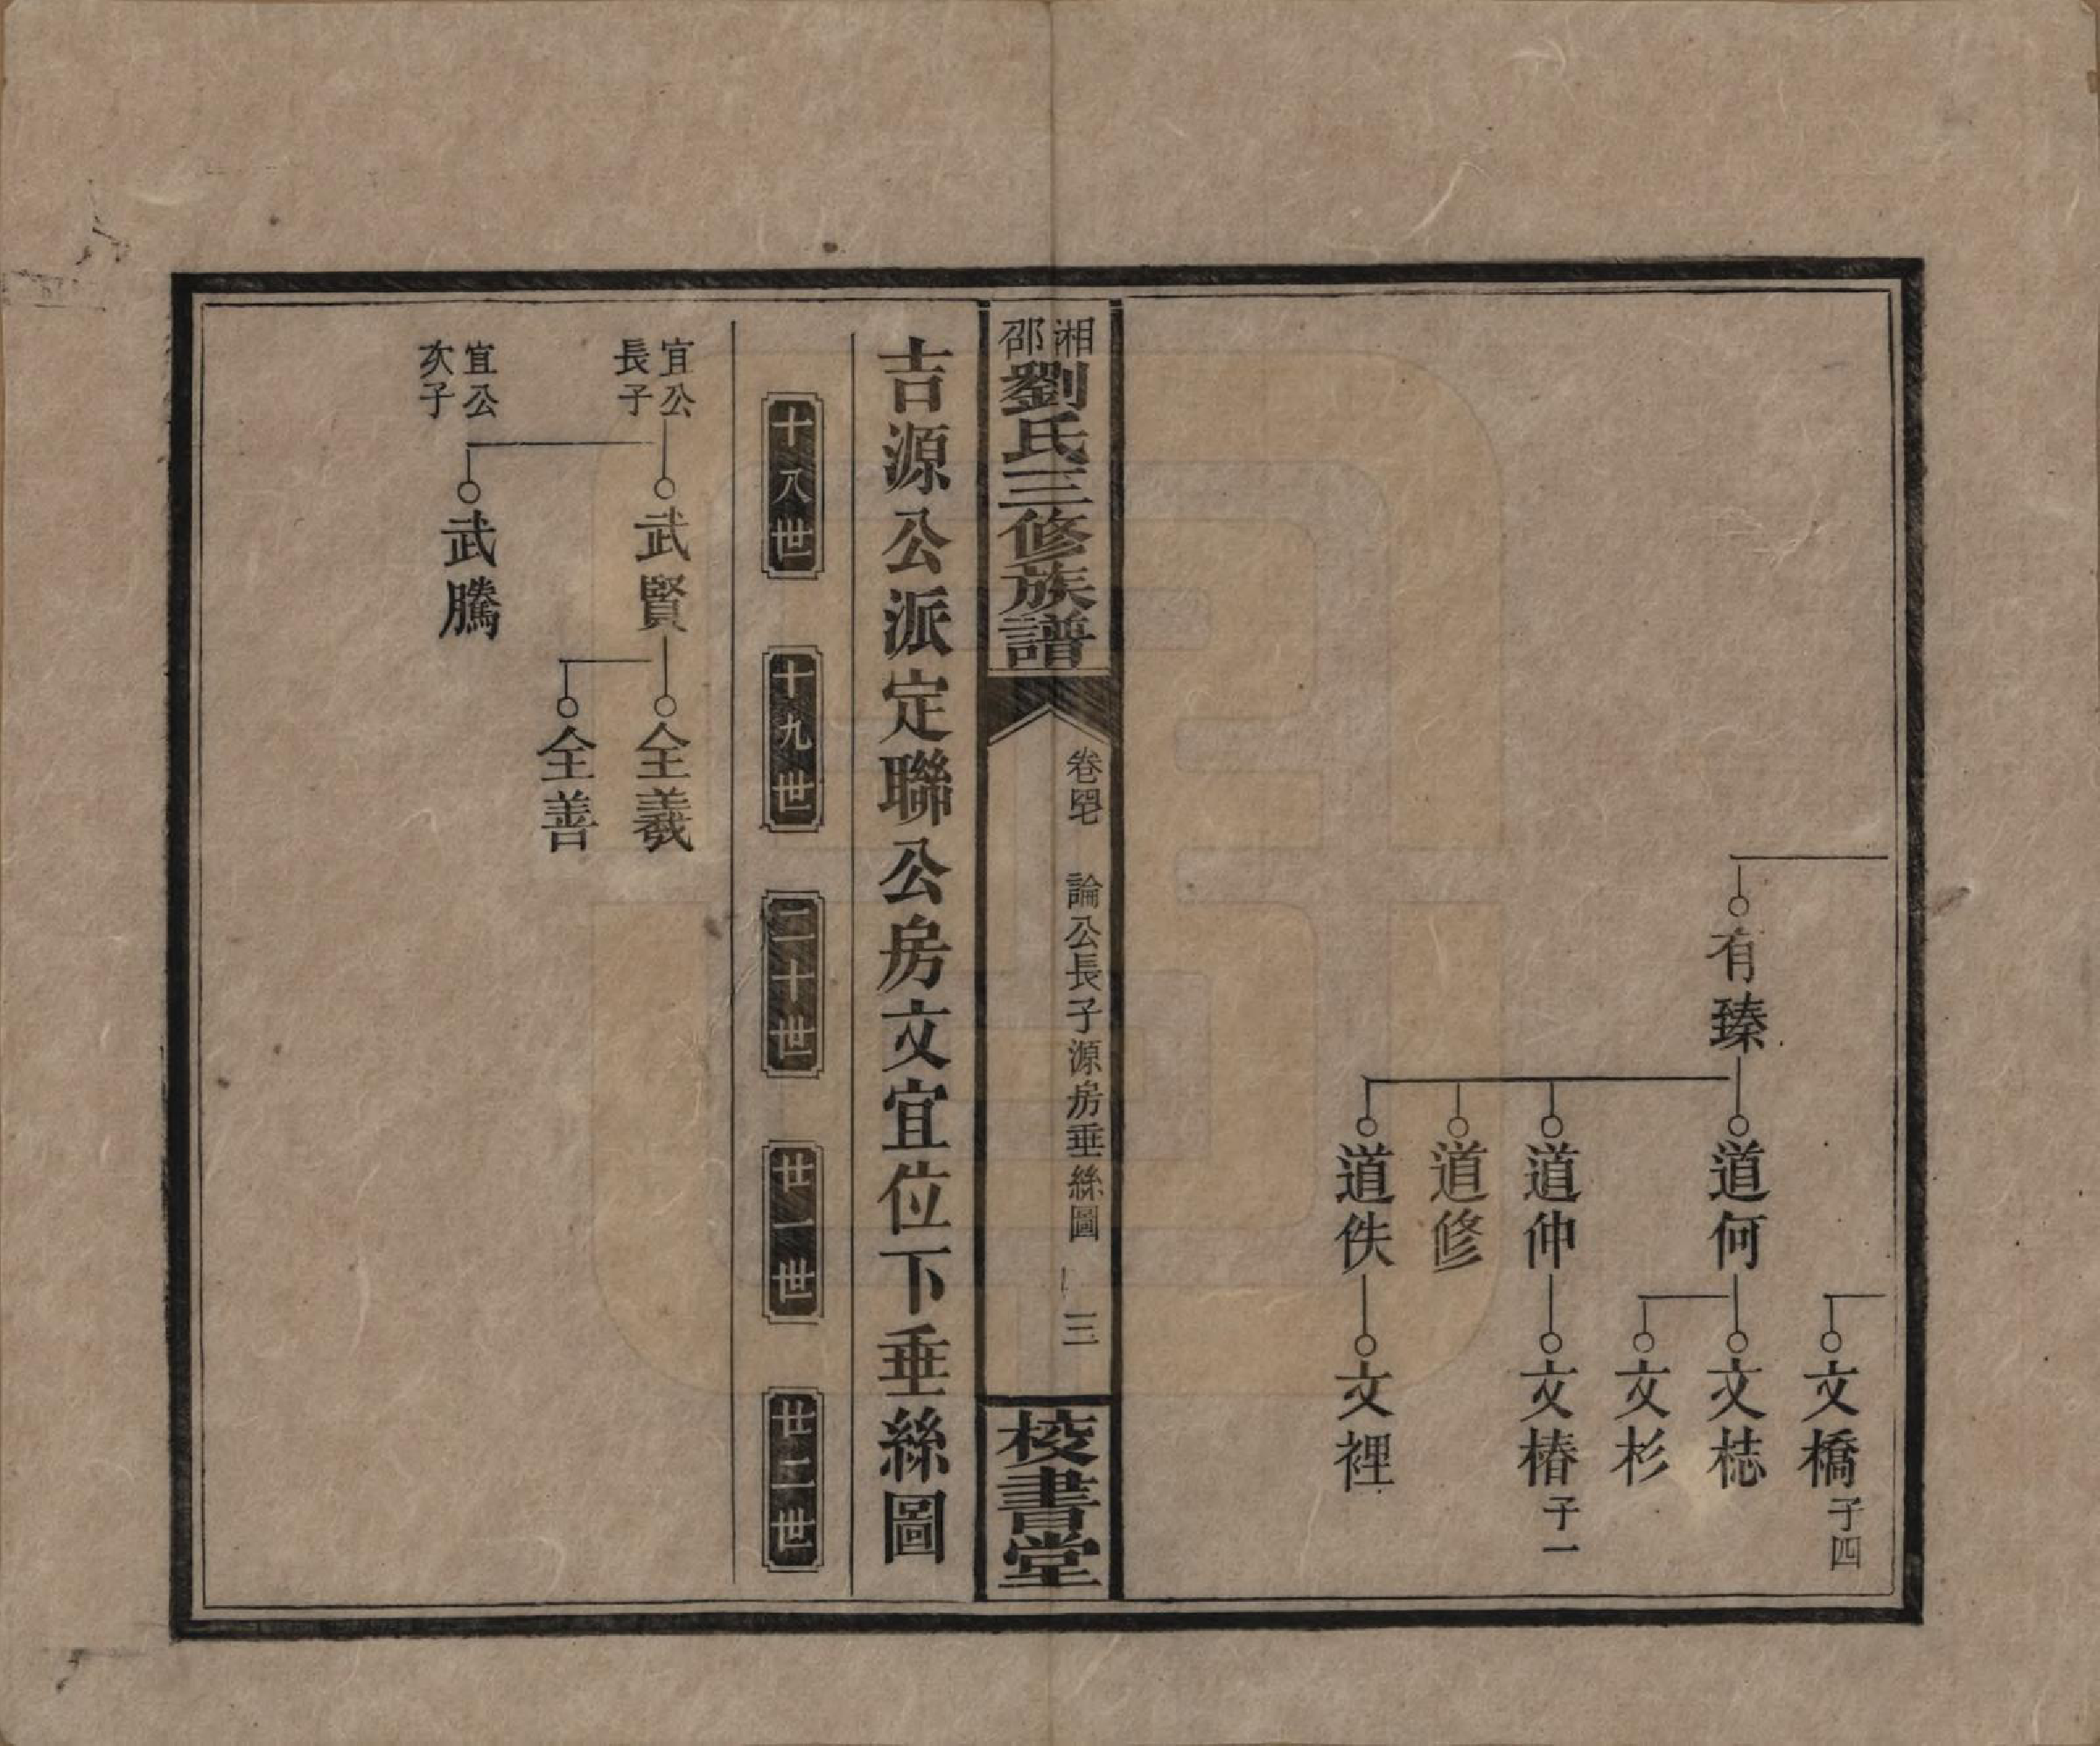 文橋 子四
有臻
道何
文梽
文杉
道仲
文椿 子一
道修
道佚
文裡
湘邵劉氏三修族譜
卷 論公長子源房垂絲圖 三
校書堂
吉源公派定聯公房文宜位下垂絲圖
十八世 十九世 二十世 廿一世 廿二世
宜公長子
武賢
全義
全善
宜公次子
武騰